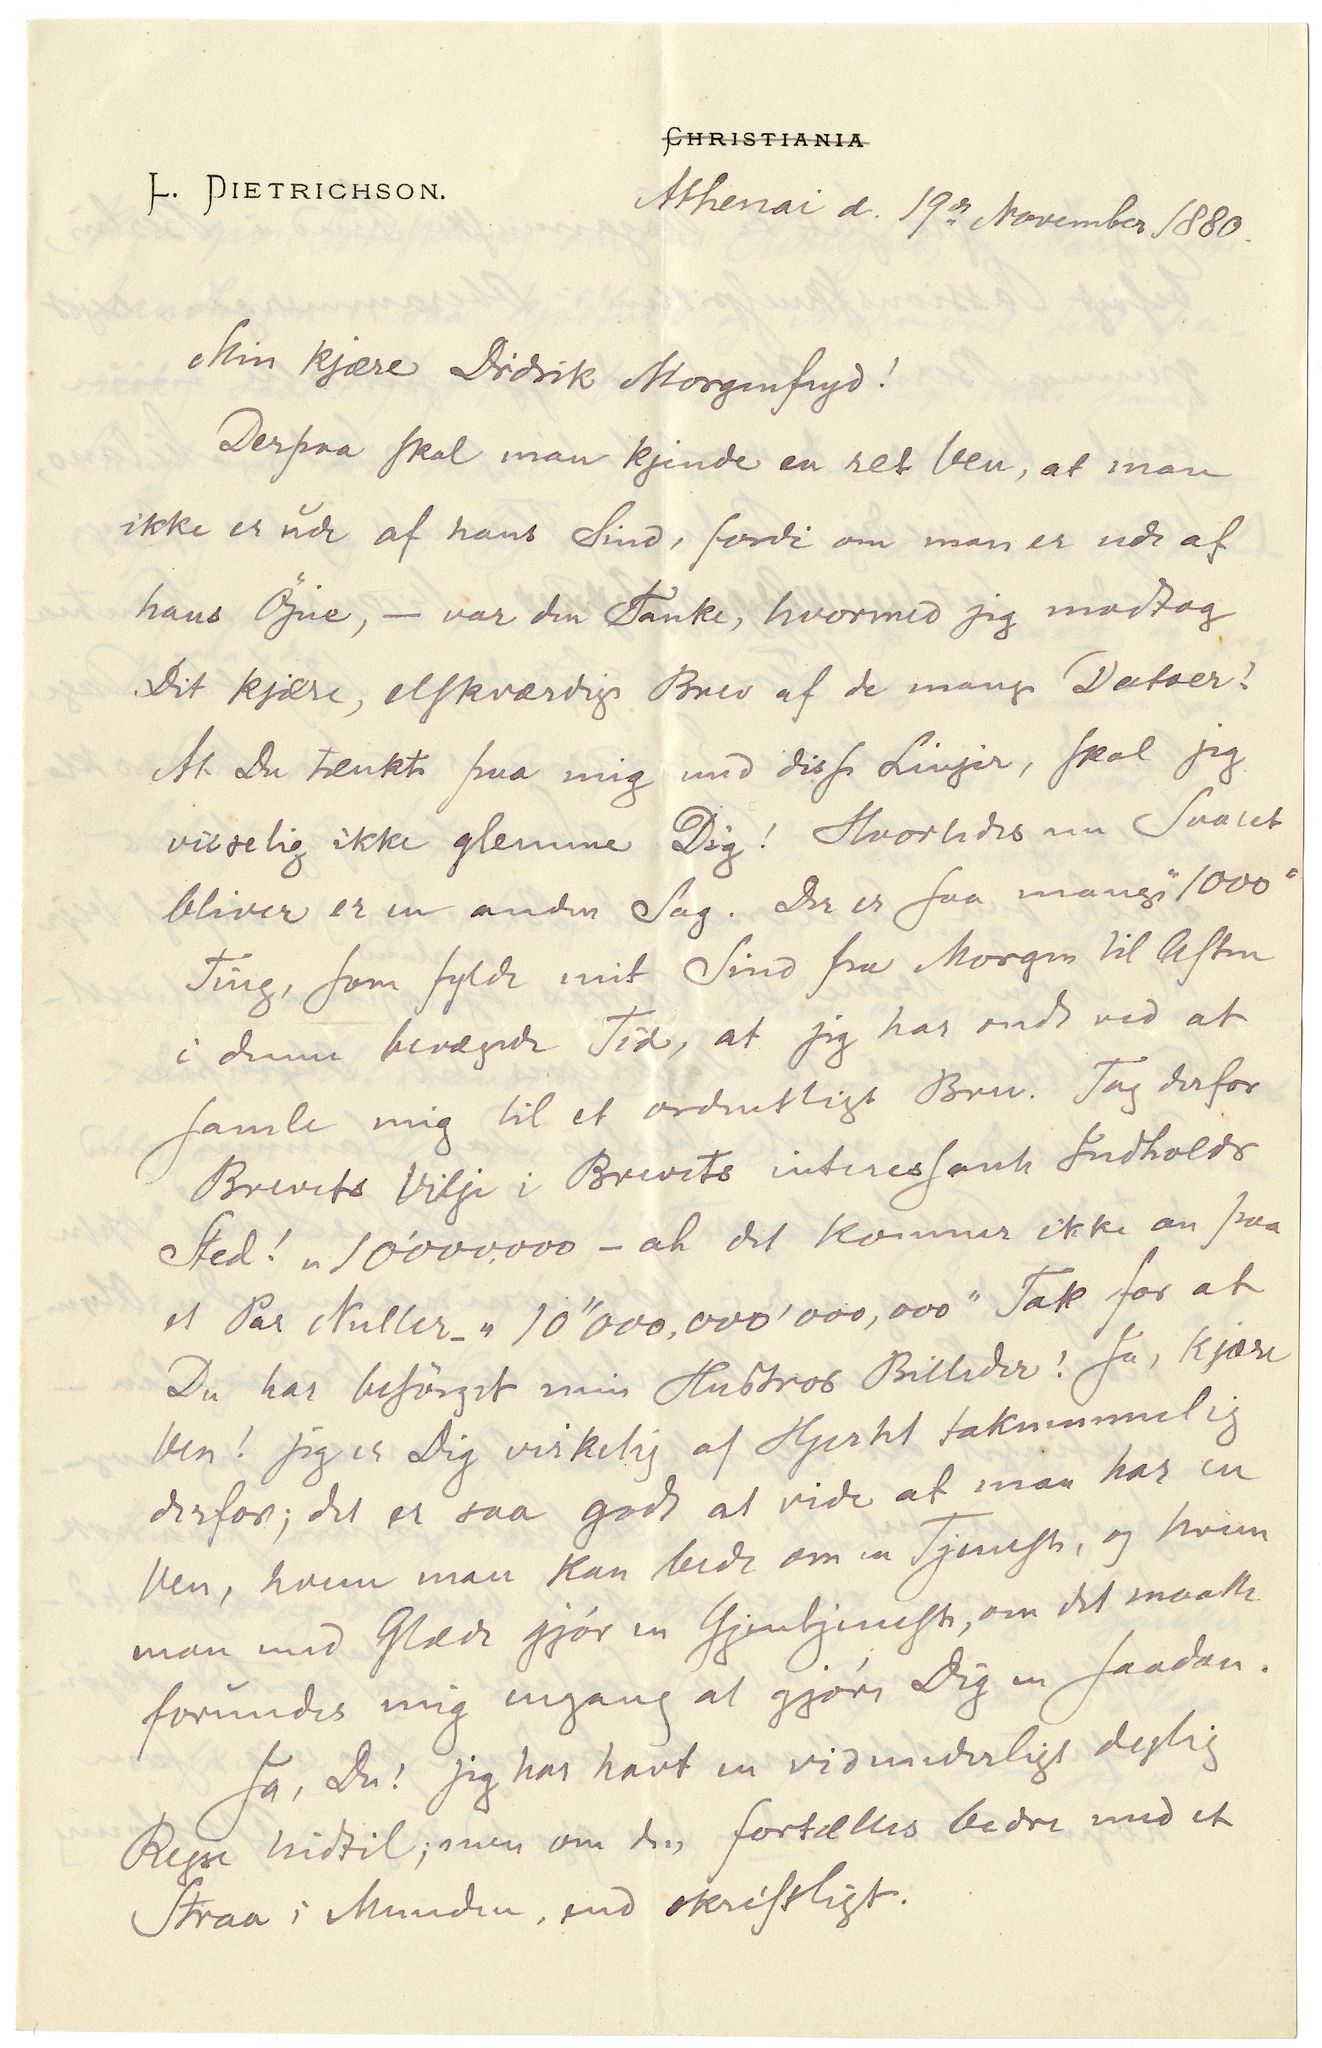 CHRISTIANIA
L. DIETRICHSON.
Athenai d. 19de November 1880.
Min kjære Didrik Morgenfryd!
Derpaa skal man kjende en ret Ven, at man
ikke er ude af hans Sind, fordi om man er ude af
hans Öjne, – var den Tanke, hvormed jeg modtog
Dit kjære, elskværdige Brev af de mange Datoer!
At Du tænkte paa mig med disse Linjer, skal jeg
visselig ikke glemme Dig! Hvorledes nu Svaret
bliver er en anden Sag. Der er saa mange "1000"
Ting, som fylde mit Sind fra Morgen til Aften
i denne bevægede Tid, at jeg har ondt ved at
samle mig til et ordentligt Brev. Tag derfor
Brevets Vilje i Brevets interessante Indholds
Sted! „10'000.000 – ah det kommer ikke an paa
et Par Nuller – „10"000,000'000,000" Tak for at
Du har besörget min Hustros Billeder! Ja, kjære
Ven! jeg er Dig virkelig af Hjertet taknemmelig
derfor; det er saa godt at vide at man har en
Ven, hvem man kan bede om en Tjeneste, og hvem
man med Glæde gjör en Gjentjeneste, om det maatte
forundes mig engang at gjöre Dig en saadan.
Ja, Du! jeg har havt en vidunderligt dejlig
Rejse hidtil; men om den fortælles bedre med et
Straa i Munden, end skriftligt.